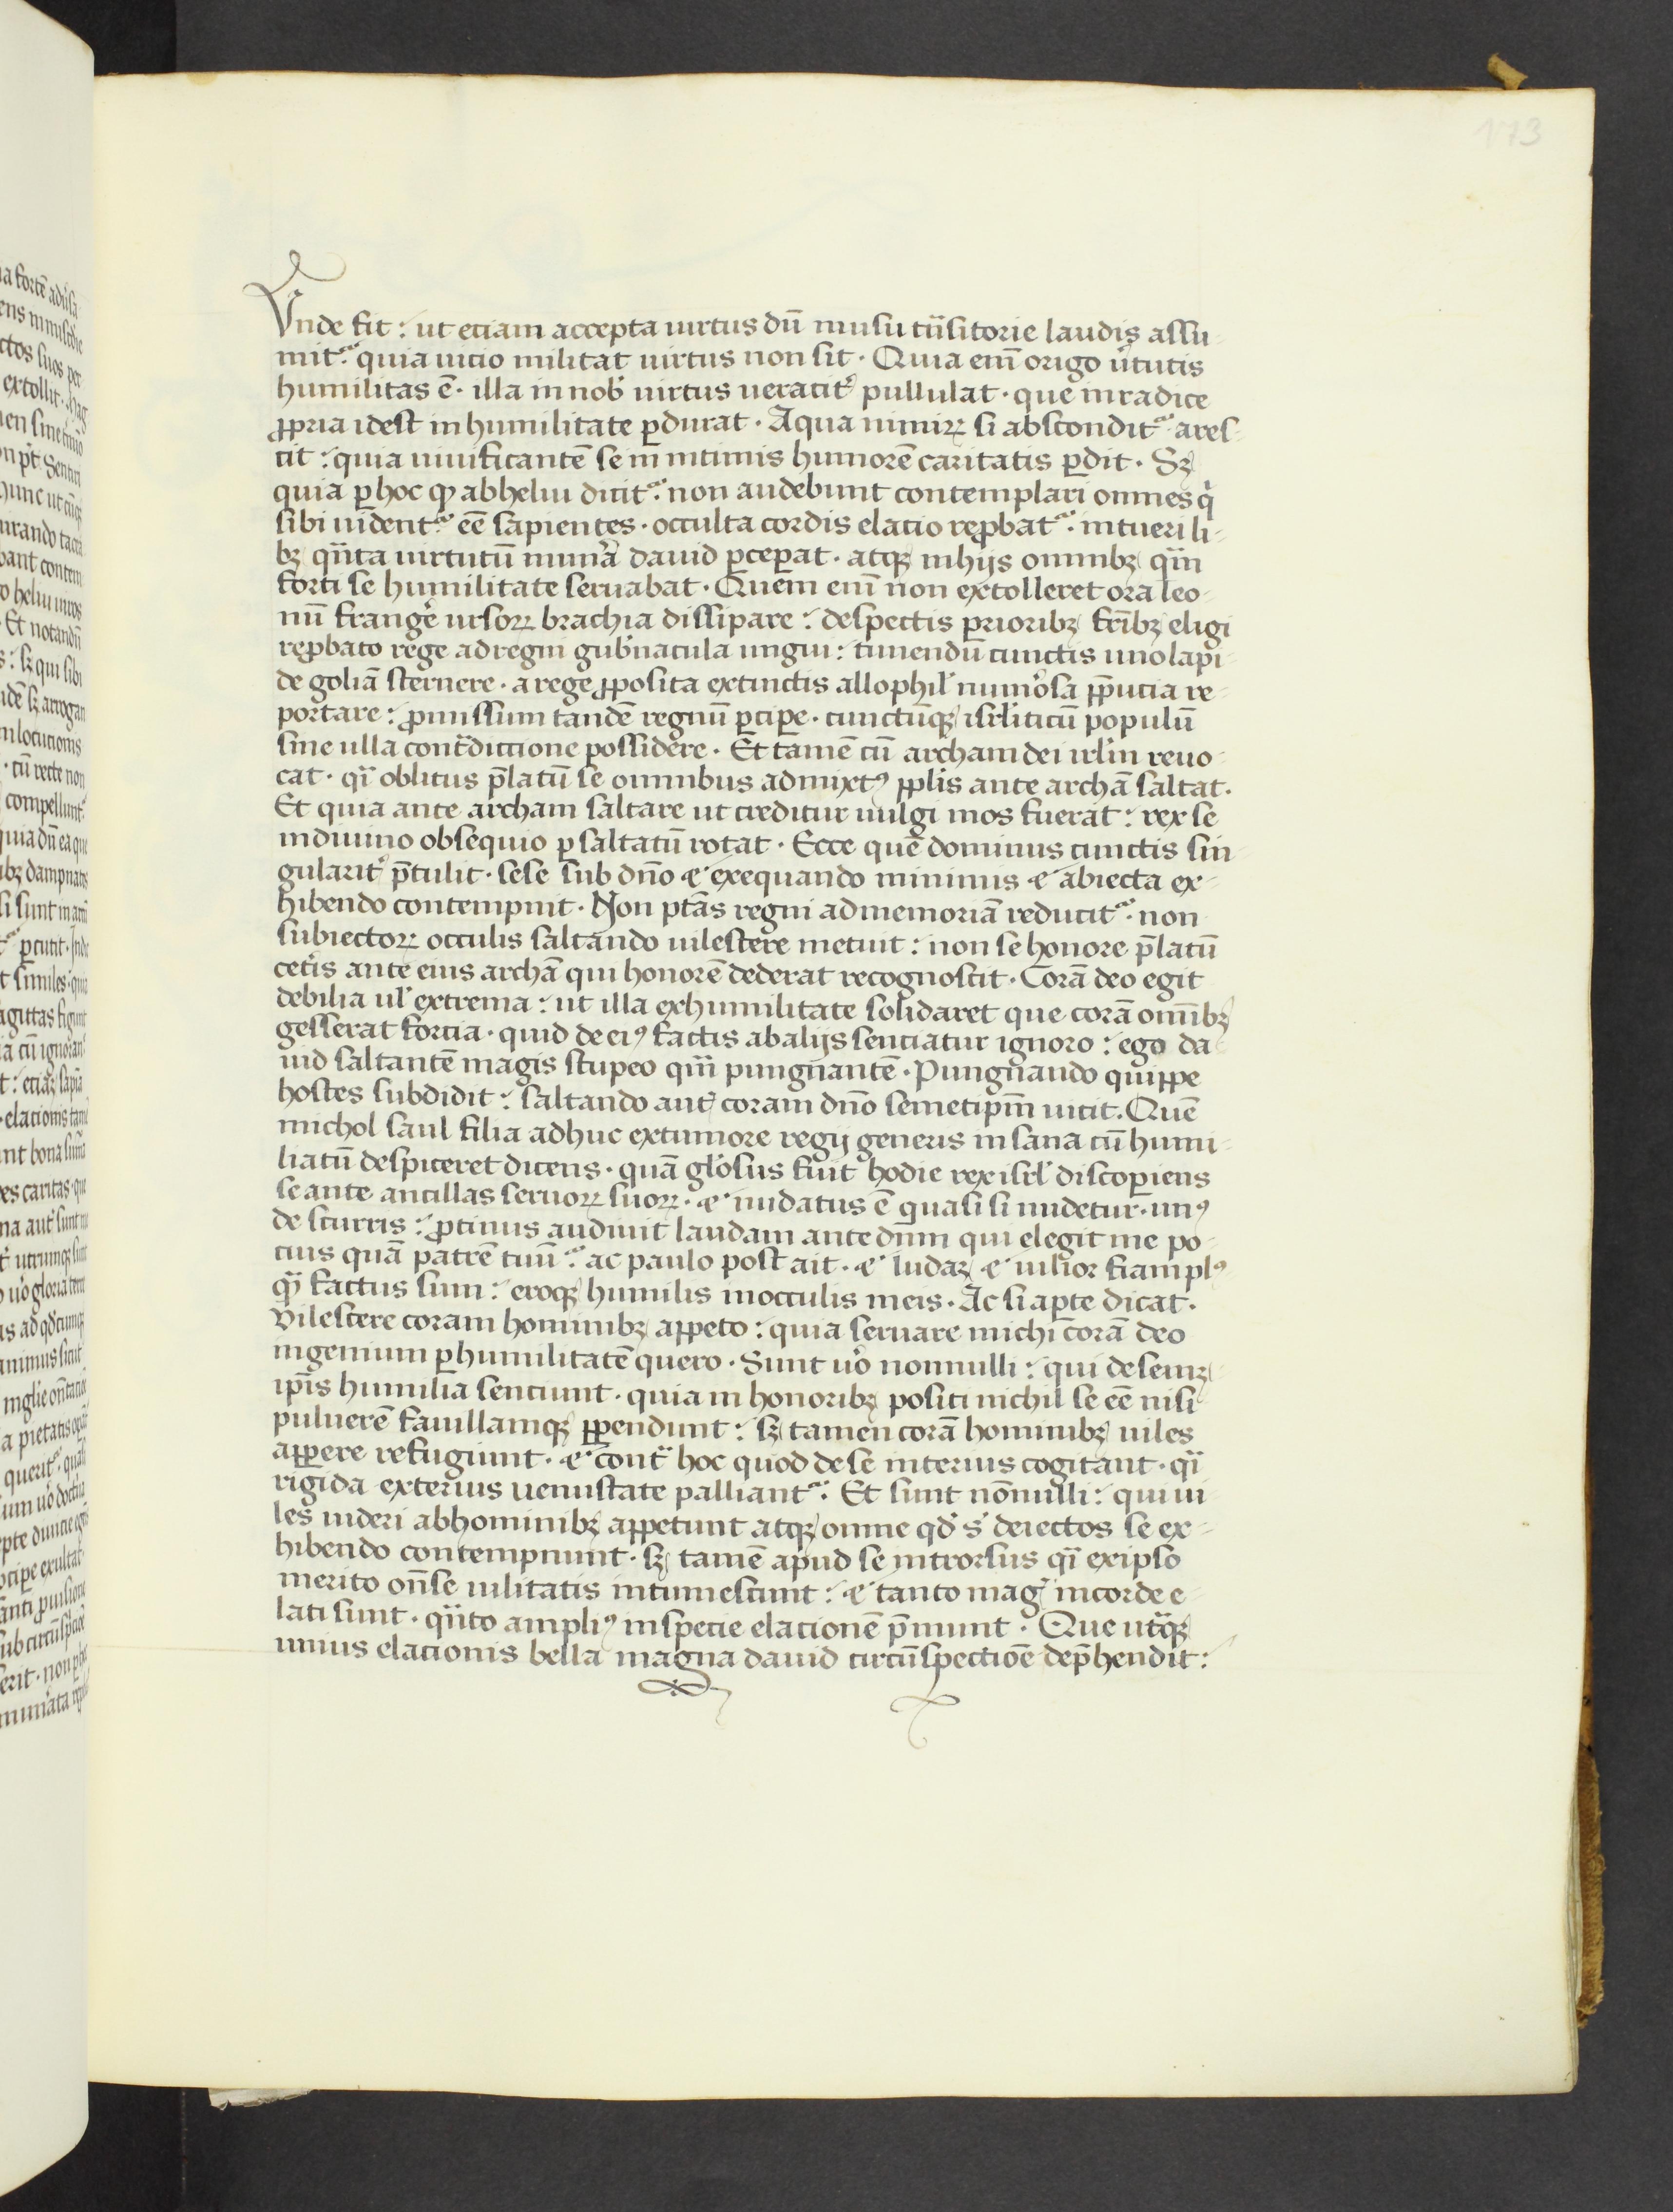 173
Vnde fit: ut etiam accepta uirtus dū in usu tn̄sitorie laudis assu-
mit᷑ quia uicio militat uirtus non sit. Quia enī origo ůtutis
humilitas ē. illa in nob̓ uirtus ueracit̓ pullulat. que in radice
ꝓpria idest in humilitate ꝑdurat. Aqua nimiꝝ si abscondit᷑ ares-
cit: quia uiuificantē se in intimis humorē caritatis ꝑdit. Sꝫ
quia ꝑ hoc ꝙ ab heliu dicit᷑ non audebunt contemplari omnes q̇
sibi uident᷑ eē sapientes. occulta cordis elacio reꝓbat᷑. intueri li-
bꝫ qn̈ta uirtutū mun̓a dauid ꝑceꝑat. atqꝫ in hijs omnibꝫ qn̈
forti se humilitate seruabat. Quem enī non extolleret ora leo-
nū frang̓e ursoꝝ brachia dissipare: despectis ꝑrioribꝫ fr̄ibꝫ eligi
reꝓbato rege ad regni gub̓nacula ungui: timendū cunctis uno lapi-
de goliā sternere. a rege ꝓposita extinctis allophil̓ num̓osa p̄pucia re-
portare: ꝓmissum tandē regnū ꝑcipe. cunctūqꝫ isrl̓iticū populū
sine ulla cont̓diccione possidere. Et tamē cū archam dei irl̓m reuo-
cat. qͣi oblitus p̄latū se omnibus admixtꝰ ꝓplis ante archā saltat.
Et quia ante archam saltare ut creditur uulgi mos fuerat: rex se
in diuino obsequio ꝑ saltatū rotat. Ecce quē dominus cunctis sin-
gularit̓ p̄tulit. sese sub dn̄o ⁊ exequando minimis ⁊ abiecta ex-
hibendo contempnit. Non ptās regni ad memoriā reducit᷑. non
subiectoꝝ occulis saltando uilescere metuit: non se honore p̄latū
cet̓is ante eius archā qui honorē dederat recognoscit. Corā deo egit
debilia ul̓ extrema: ut illa ex humilitate solidaret que corā om̄ibꝫ
gesserat forcia. quid de eiꝰ factis ab alijs senciatur ignoro: ego da-
uid saltantē magis stupeo qͣ̈ pungnantē. Pungnando quippe
hostes subdidit: saltando aut̓ coram dn̄o semetipm̄ uicit. Quē
michol saul filia adhuc ex tumore regij generis insana cū humi-
liatū despiceret dicens. quā gl̓osus fuit hodie rex isrl̓ discoꝑiens
se ante ancillas seruoꝝ suoꝝ. ⁊ nudatus ē quasi si nudetur. unꝰ
de scurris: ꝓtinus audiuit laudam ante dn̄m qui elegit me po-
cius quā patrē tuū. ac paulo post ait. ⁊ ludaꝫ ⁊ uilior fiam plꝰ
qͣꝫ factus sum: eroqꝫ humilis in occulis meis. Ac si aꝑte dicat.
Vilescere coram hominibꝫ appeto: quia seruare michi corā deo
ingenium ꝑ humilitatē quero. Sunt ůo nonnulli: qui de semꝫ-
ip̄is humilia senciunt. quia in honoribꝫ positi nichil se eē nisi
puluerē fauillamqꝫ ꝑpendunt: sꝫ tamen corā hominibꝫ uiles
apꝑere refugiunt. ⁊ cont̓ hoc quod de se interius cogitant. qͣi
rigida exterius uenustate palliant᷑. Et sunt nōnulli: qui ui-
les uideri ab hominibꝫ appetunt atqꝫ omne qd̓ s̓ deiectos se ex-
hibendo contempnunt. sꝫ tamē apud se introrsus qͣi ex ipso
merito on̄se uilitatis intumescunt: ⁊ tanto mag̓ in corde e-
lati sunt. qn̈to ampliꝰ in specie elacionē p̄munt. Que ut̓qꝫ
unius elacionis bella magna dauid circūspectiōe dep̄hendit: